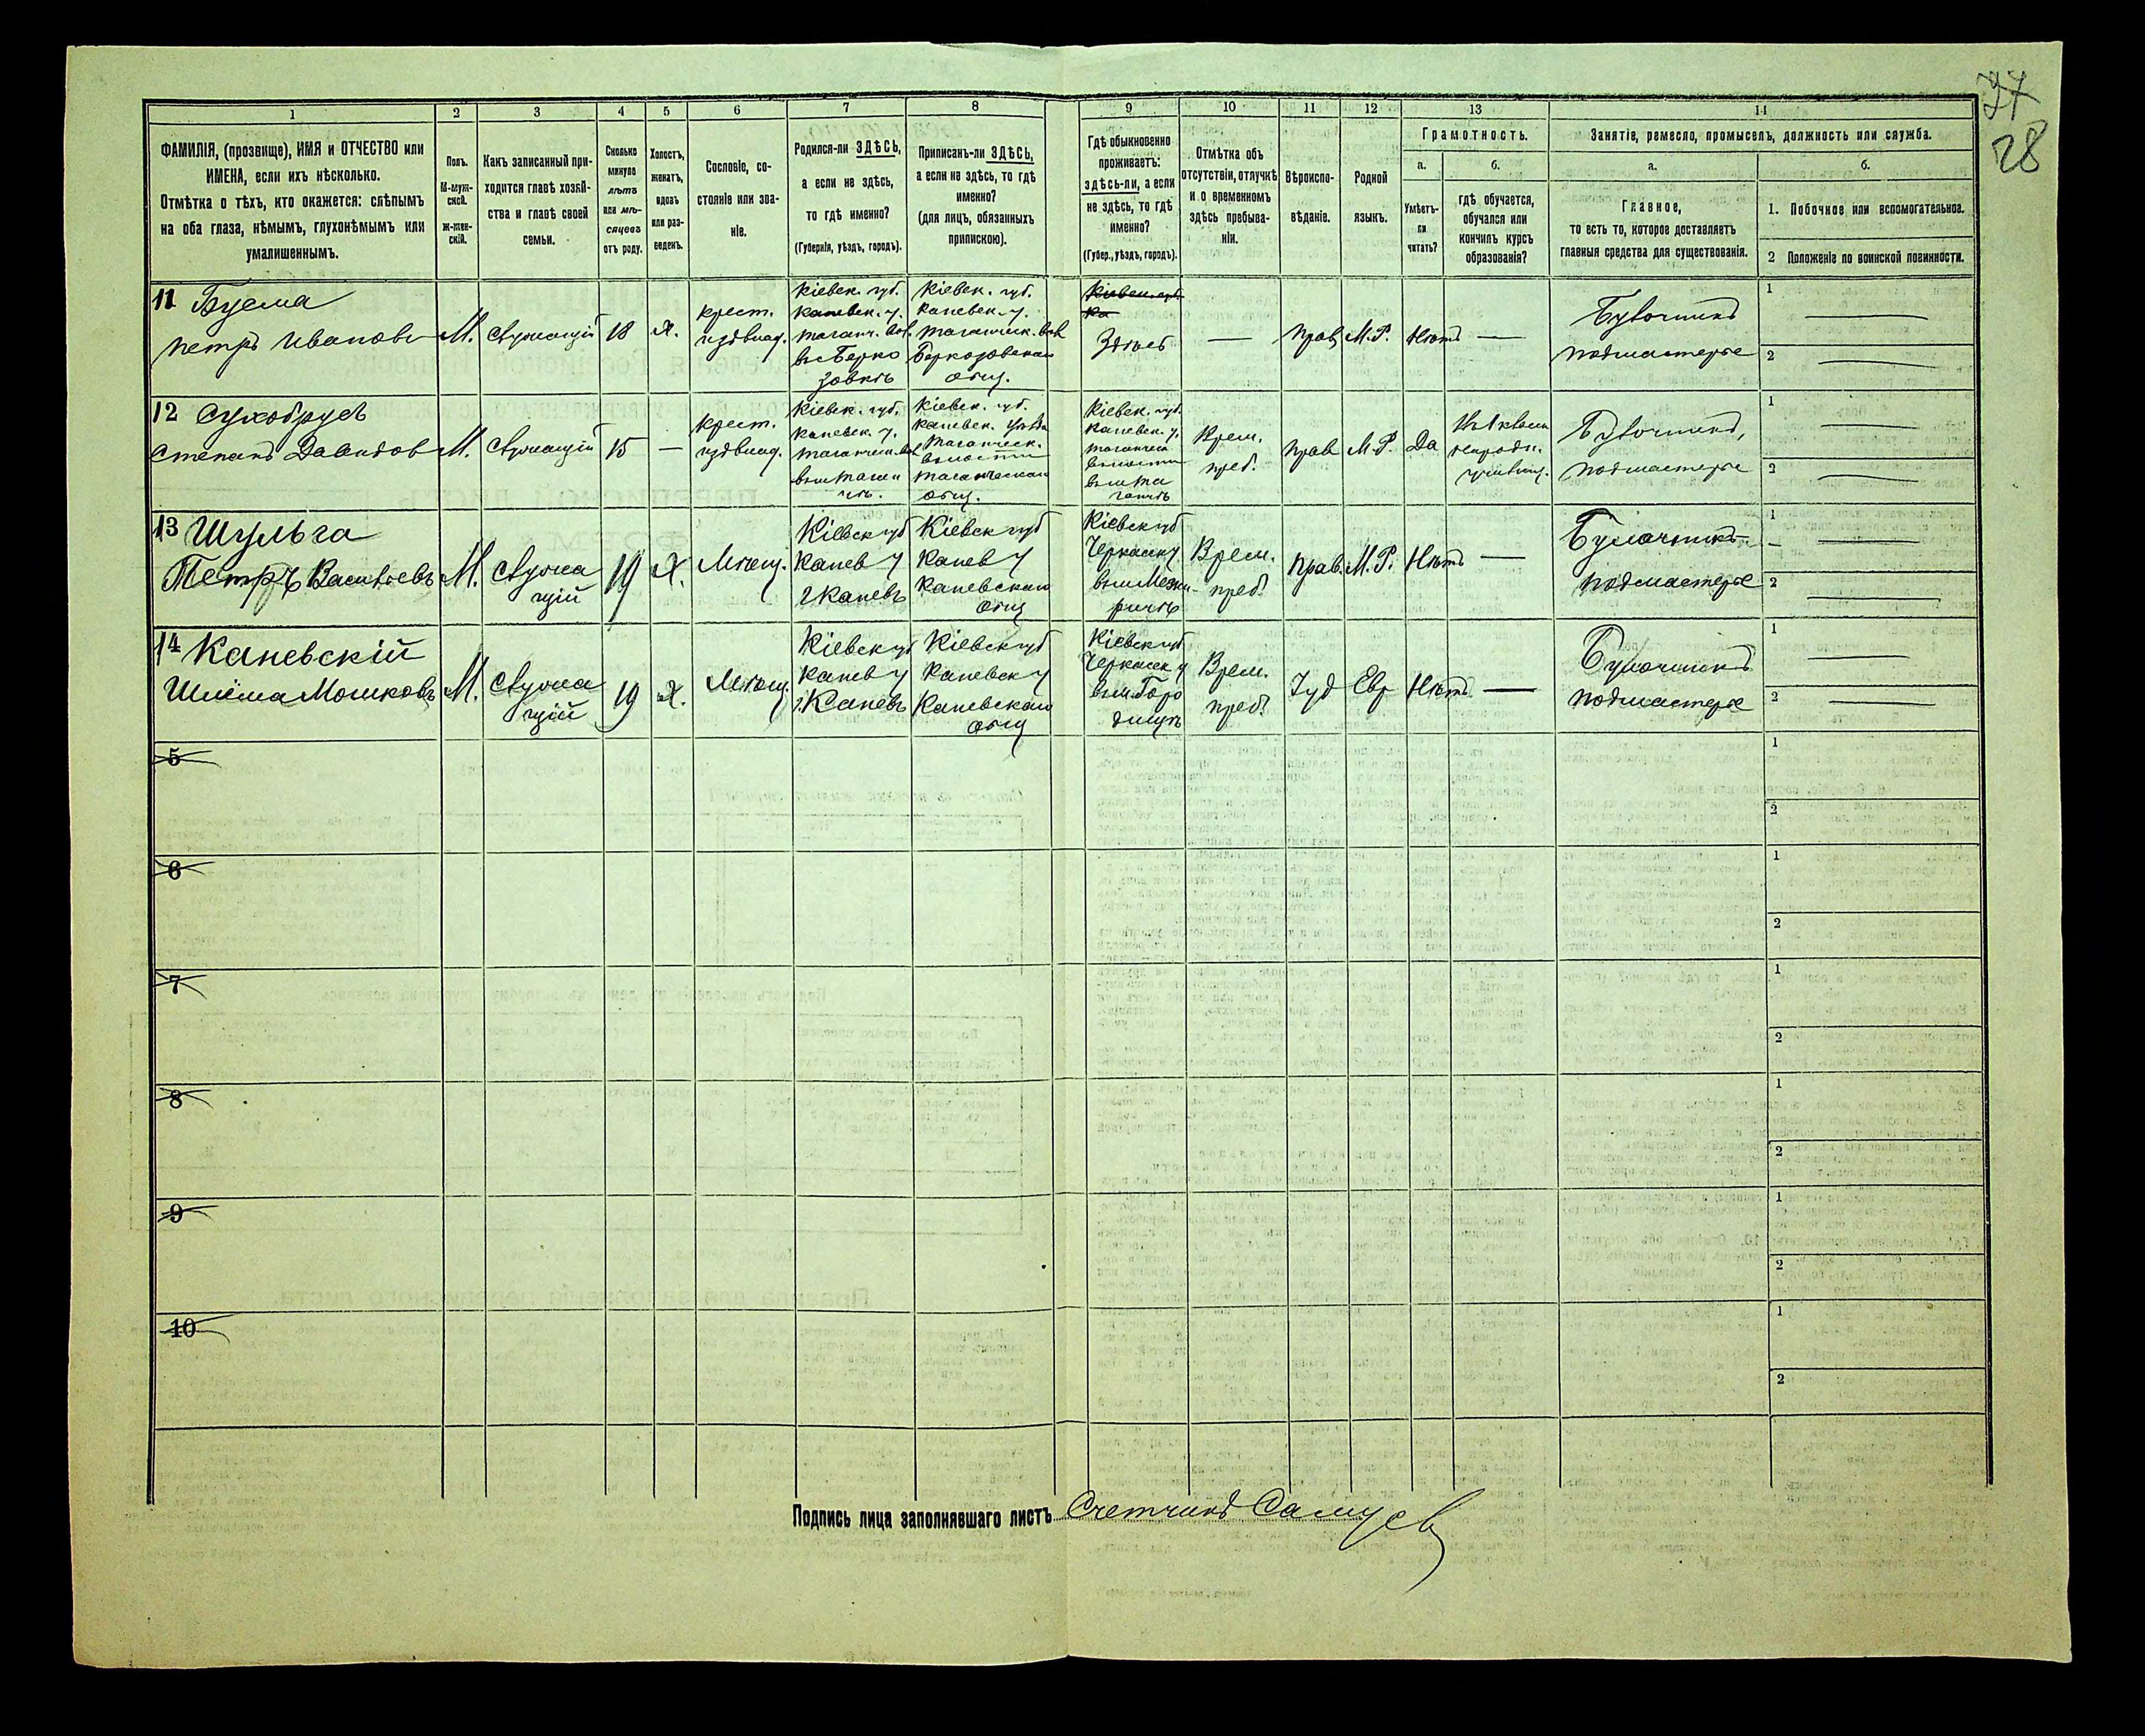 27
28
1
2
3
4
5
6
7
8
9
10
11
12
13
14
ФАМИЛІЯ, (прозвище), ИМЯ и ОТЧЕСТВО или
ИМЕНА, если ихъ нѣсколько.
Отмѣтка о тѣхъ, кто окажется: слѣпымъ
на оба глаза, нѣмымъ, глухонѣмымъ или
умалишеннымъ.
Полъ.
М-муж-
ской.
Ж-жен-
скій.
Какъ записанный при-
ходится главѣ хозяй-
ства и главѣ своей
семьи.
Сколько
минуло
лѣтъ
или мѣ-
сяцевъ
отъ роду.
Холостъ,
женатъ,
вдовъ
или раз-
веденъ.
Сословіе, со-
стояніе или зва-
ніе.
Родился-ли ЗДѢСЬ,
а если не здѣсь,
то гдѣ именно?
(Губернія, уѣздъ, городъ).
Приписанъ-ли ЗДѢСЬ,
а если не здѣсь, то гдѣ
именно?
(для лицъ, обязанныхъ
припискою).
Гдѣ обыкновенно
проживаетъ:
здѣсь-ли, а если
не здѣсь, то гдѣ
именно?
(Губер., уѣздъ, городъ).
Отмѣтка объ
отсутствіи, отлучкѣ
и о временномъ
здѣсь пребыва-
ніи.
Вѣроиспо-
вѣданіе.
Родной
языкъ.
Грамотность.
а.
б.
Умѣетъ-
ли
читать?
гдѣ обучается,
обучался или
кончилъ курсъ
образованія?
Занятіе, ремесло, промыселъ, должность или служба.
а.
б.
Главное,
то есть то, которое доставляетъ
главныя средства для существованія.
1. Побочное или вспомогательное.
2 Положеніе по воинской повинности.
11
Петръ Ивановъ
М.
Служащій
18
Х.
крест.
Кіевск. губ.
Каневск. у.
Кіевск. губ.
Каневск. у.
общ.
Здѣсь
—
Прав
М.Р.
Нѣтъ
—
Булочникъ
подмастерье
1
2
12 Сухобрусъ
Степанъ Давидовъ
М.
Служащій
15
—
крест.
Кіевск. губ.
Каневск. у.
Кіевск. губ.
Каневск. уѣзда
общ.
Кіевск. губ.
Каневск. у.
Врем.
преб.
Прав
М.Р.
Да
Булочникъ,
подмастерье
1
2
13 Шульга
Петръ Васильевъ
М.
Служа
щій
19
Х.
Мѣщ.
Кіевск губ
Канев у
г Каневъ
Кіевск губ
Канев у
Каневскаго
общ
Кіевск губ
Черкасск у.
Врем.
преб.
Прав.
М.Р.
Нѣтъ
—
Булочникъ
подмастерье
1
2
14 Каневскій
Шлёма Мошковъ
М.
Служа
щій
19
Х.
Мѣщ.
Кіевск губ
Канев у
г. Каневъ
Кіевск губ
Каневск у
Каневскаго
общ
Кіевск губ
Черкасск у
Врем.
преб.
Іуд
Евр
Нѣтъ
—
Булочникъ
подмастерье
1
2
5
1
2
6
1
2
7
1
2
8
1
2
9
1
2
10
1
2
Подпись лица заполнявшаго листъ Счетчикъ